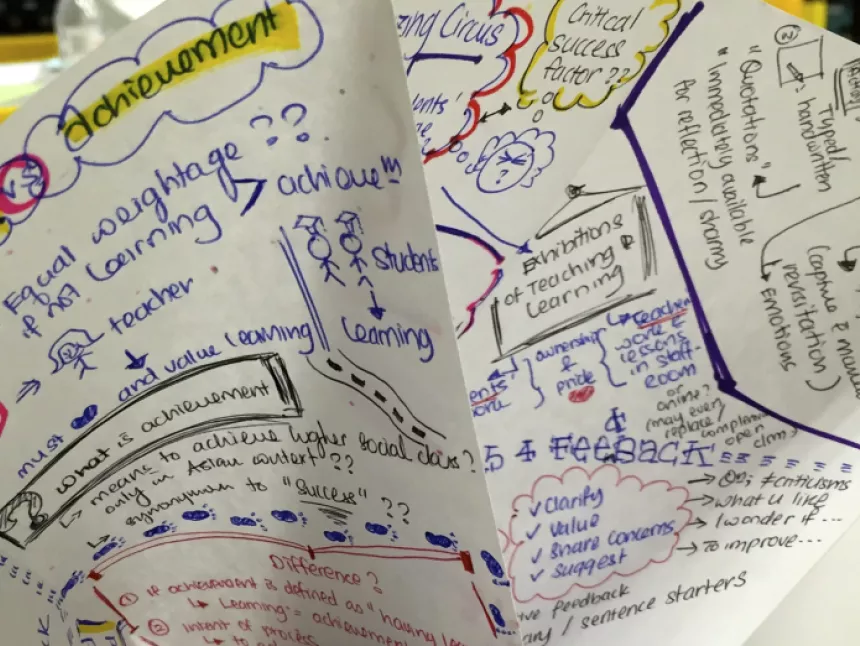 achievement
vs
Equal weightage ??
if not learning > achieve m
⇒ teacher
students
↓
learning
must and value learning
what is achievement
↳ means to achieve higher social class?
only in Asian context??
synonymn to "success" ??
Difference?
① if achievement is defined as "having
↳ Learning = achievement
② intent of process
↳ to
ing Circus
Critical
success
factor??
Exhibitions
of Teaching &
Learning
ownership
&
pride
↳ teacher
work &
lessons
in staff-
room
or
online?
(may even
replace /
open
54 Feedback
✓ clarify
✓ value
✓ share concerns
✓ suggest
→ Qs; ≠ criticisms
→ what u like
→ I wonder if ...
→ To improve...
feedback
/ sentence starters
②
: Typed /
handwritten
"Quotations"
"immediately available
for reflection / sharing
(capture &
revisitation)
Emotions